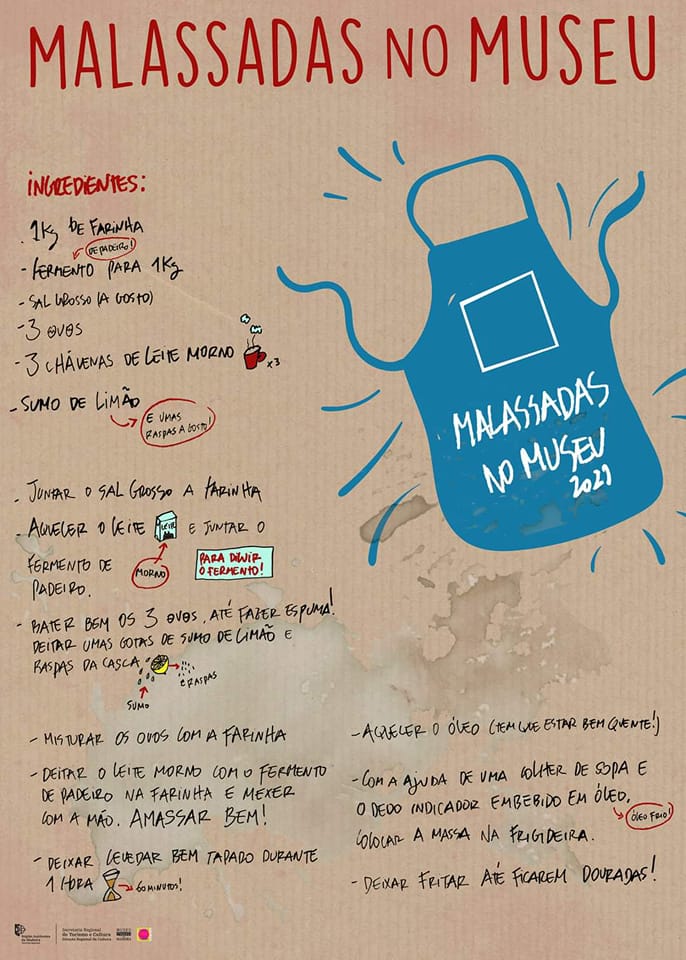 MALASSADAS NO MUSEU
INGREDIENTES:
. 1Kg DE FARINHA
DE PADEIRO!
- FERMENTO PARA 1Kg
- SAL GROSSO (A GOSTO)
- 3 OVOS
- 3 CHÁVENAS DE LEITE MORNO x3
- SUMO DE LIMÃO
E UMAS
RASPAS A GOSTO!
MALASSADAS
NO MUSEU
2021
- JUNTAR O SAL GROSSO A FARINHA
- AQUELER O LEITE LEITE E JUNTAR O
FERMENTO DE
PADEIRO.
MORNO
PARA DILUIR
O FERMENTO!
- BATER BEM OS 3 OVOS, ATÉ FAZER ESPUMA!
DEITAR UMAS GOTAS DE SUMO DE LIMÃO E
RASPAS DA CASCA
SUMO
RASPAS
- MISTURAR OS OVOS COM A FARINHA
- DEITAR O LEITE MORNO COM O FERMENTO
DE PADEIRO NA FARINHA E MEXER
COM A MÃO. AMASSAR BEM!
- DEIXAR LEVEDAR BEM TAPADO DURANTE
1 HORA 60 MINUTOS!
- AQUELER O ÓLEO (TEM QUE ESTAR BEM QUENTE!)
- COM A AJUDA DE UMA COLHER DE SOPA E
O DEDO INDICADOR EMBEBIDO EM ÓLEO,
ÓLEO FRIO!
COLOCAR A MASSA NA FRIGIDEIRA.
- DEIXAR FRITAR ATÉ FICAREM DOURADAS!
Região Autónoma
da Madeira
Secretaria Regional
de Turismo e Cultura
Direção Regional da Cultura